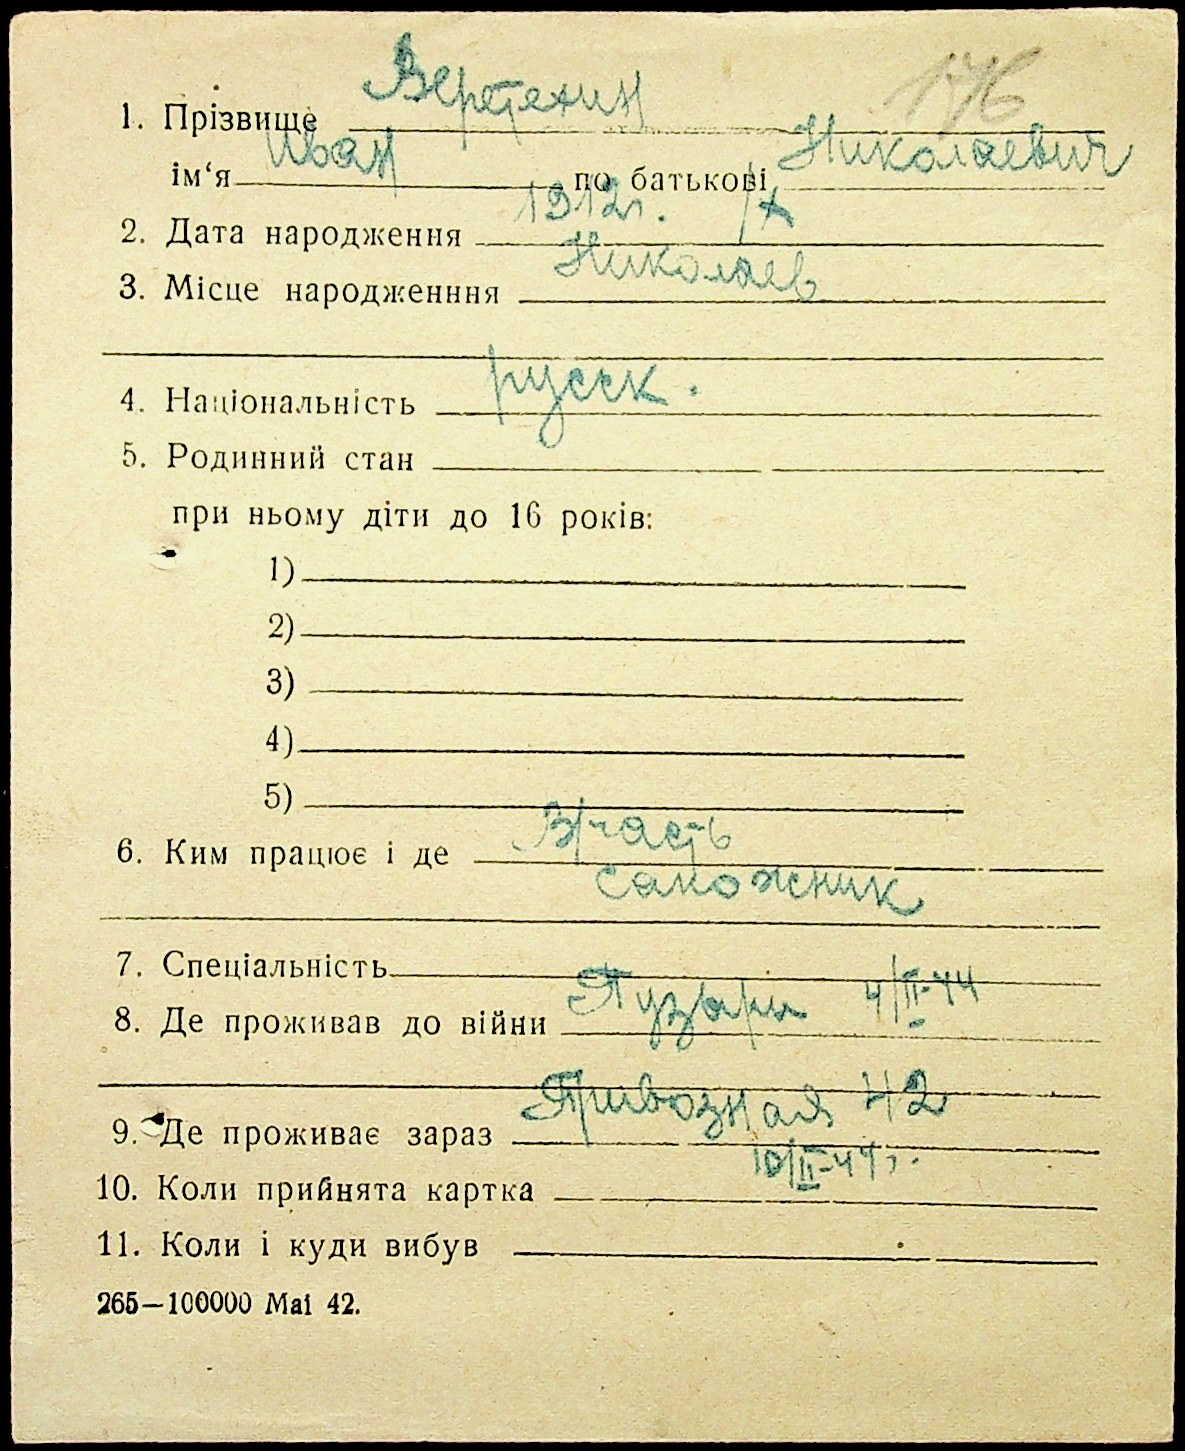 176
1. Прізвище Веретехин
ім‘я Иван по батькові Николаевич
2. Дата народження 1912г. /X
3. Місце народженння Николаев
4. Національність русск.
5. Родинний стан
при ньому діти до 16 років:
1)
2)
3)
4)
5)
6. Ким працює і де В/часть
сапожник
7. Спеціальність
8. Де проживав до війни Пузыри 4/II-44
9. Де проживає зараз Привозная 42
10. Коли прийнята картка 10/II-44г.
11. Коли і куди вибув
265—100000 Mai 42.